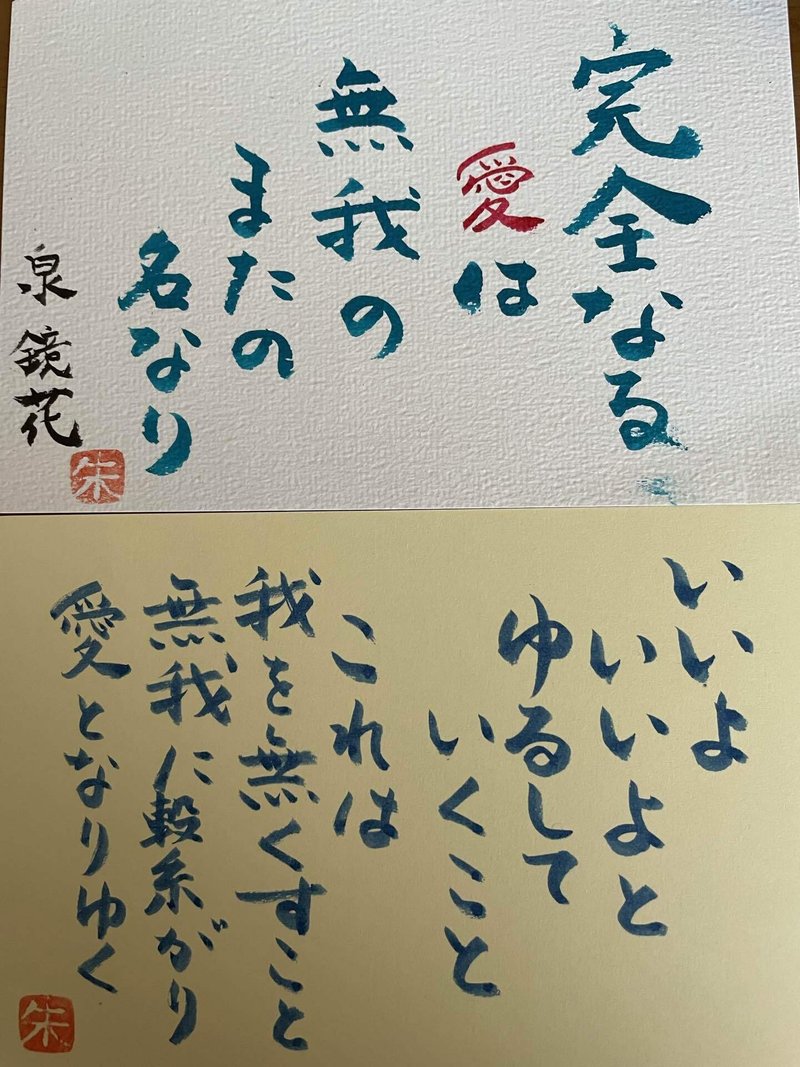 完全なる
愛は
無我の
またの
名なり
泉 鏡花
朱
いいよ
いいよと
ゆるして
いくこと
これは
我を無くすこと
無我に繋がり
愛となりゆく
朱